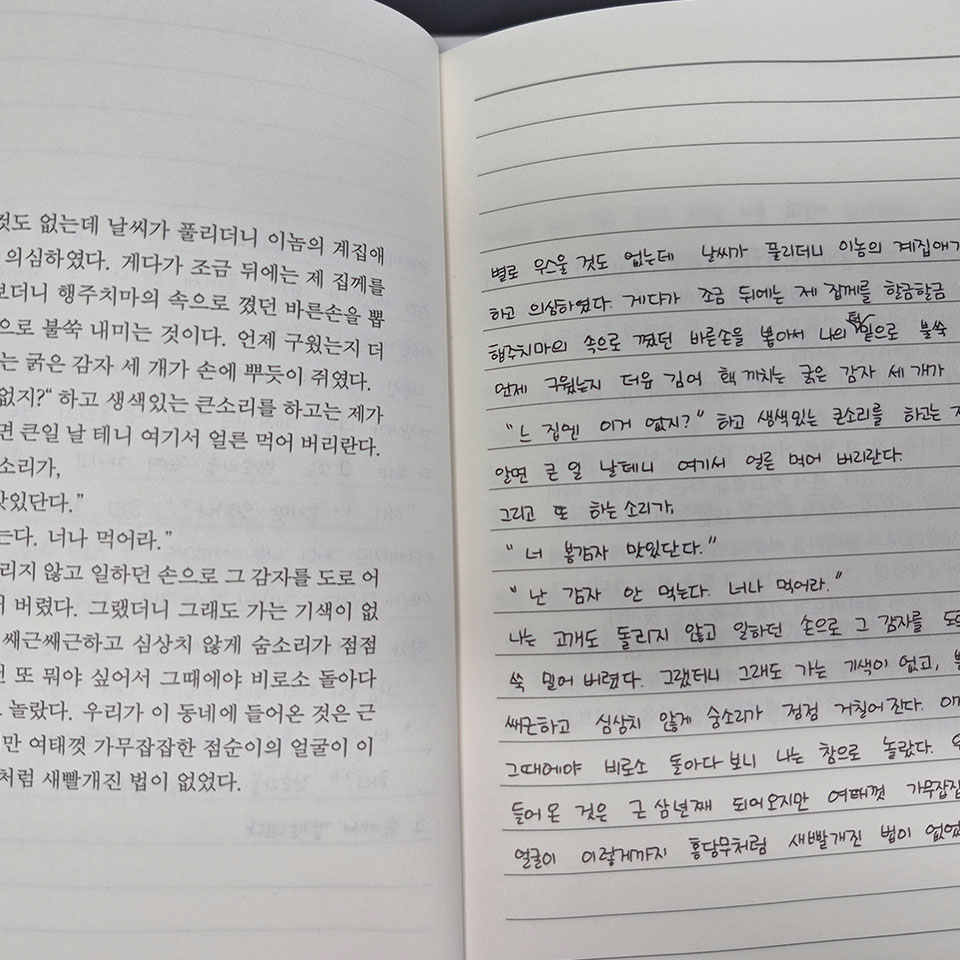 것도 없는데 날씨가 풀리더니 이놈의 계집애
의심하였다. 게다가 조금 뒤에는 제 집께를
보더니 행주치마의 속으로 꼈던 바른손을 뽑
으로 불쑥 내미는 것이다. 언제 구웠는지 더
는 굵은 감자 세 개가 손에 뿌듯이 쥐였다.
없지?“ 하고 생색있는 큰소리를 하고는 제가
면 큰일 날 테니 여기서 얼른 먹어 버리란다.
소리가,
맛있단다.”
는다. 너나 먹어라.”
리지 않고 일하던 손으로 그 감자를 도로 어
버렸다. 그랬더니 그래도 가는 기색이 없
쌔근쌔근하고 심상치 않게 숨소리가 점점
또 뭐야 싶어서 그때에야 비로소 돌아다
놀랐다. 우리가 이 동네에 들어온 것은 근
만 여태껏 가무잡잡한 점순이의 얼굴이 이
처럼 새빨개진 법이 없었다.
별로 우스울 것도 없는데 날씨가 풀리더니 이놈의 계집애가
하고 의심하였다. 게다가 조금 뒤에는 제 집께를 할금할금
행주치마의 속으로 꼈던 바른손을 뽑아서 나의 턱밑으로 불쑥
언제 구웠는지 더운 김이 홱 끼치는 굵은 감자 세 개가
“느 집엔 이거 없지?” 하고 생색있는 큰소리를 하고는
알면 큰 일 날테니 여기서 얼른 먹어 버리란다.
그리고 또 하는 소리가,
“너 봄감자 맛있단다.”
“난 감자 안 먹는다. 너나 먹어라.”
나는 고개도 돌리지 않고 일하던 손으로 그 감자를 도로
쑥 밀어 버렸다. 그랬더니 그래도 가는 기색이 없고,
쌔근하고 심상치 않게 숨소리가 점점 거칠어진다.
그때에야 비로소 돌아다 보니 나는 참으로 놀랐다.
들어온 것은 근 삼년째 되어오지만 여태껏 가무잡잡
얼굴이 이렇게까지 홍당무처럼 새빨개진 법이 없었